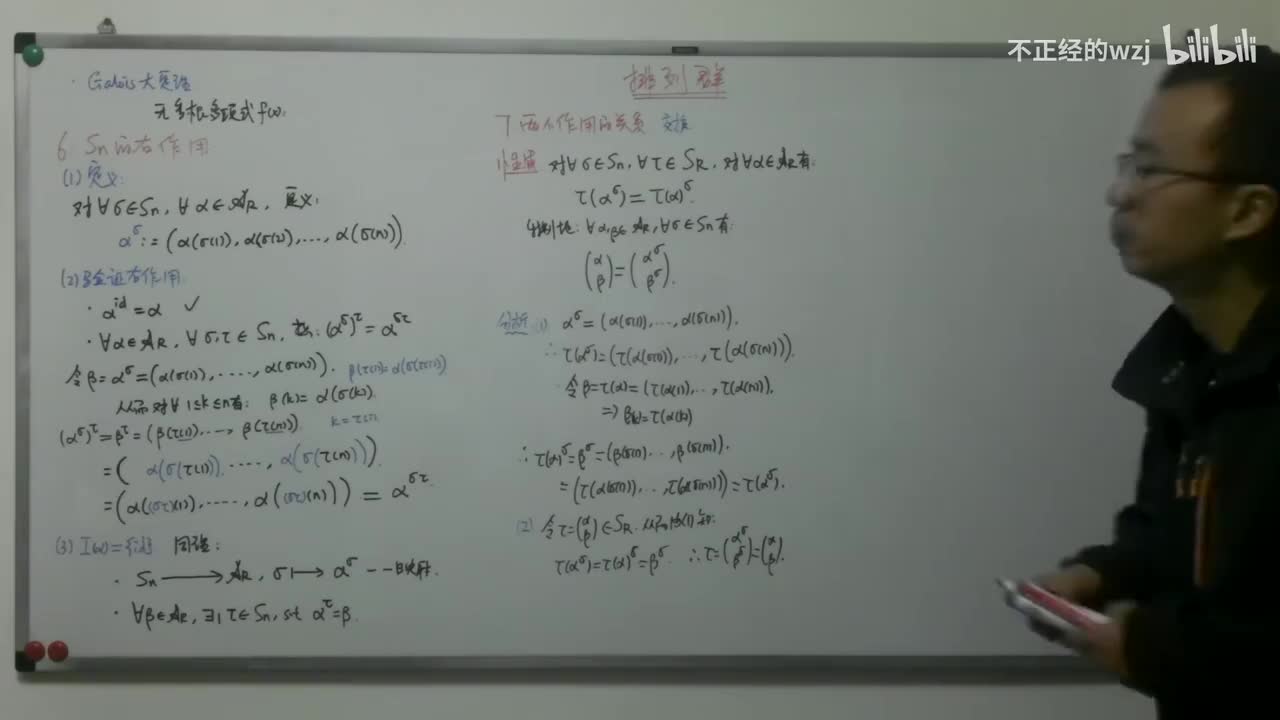 不正经的wzj bilibili
排列群
· Galois大定理
无重根多项式f(x).
6. Sn的右作用
(1) 定义:
对∀σ∈Sn, ∀α∈𝒜R, 定义:
α^σ := (α(σ(1)), α(σ(2)), ..., α(σ(n)))
(2) 验证右作用
· α^id = α ✓
· ∀α∈𝒜R, ∀σ,τ∈Sn, 有: (α^σ)^τ = α^στ
令β=α^σ=(α(σ(1)), ...., α(σ(n))). β(τ(1))=α(σ(τ(1)))
从而对∀ 1≤k≤n有: β(k)=α(σ(k)).
(α^σ)^τ=β^τ=(β(τ(1)), ..., β(τ(n))). k=τ(1).
=(α(σ(τ(1))), ...., α(σ(τ(n)))).
=(α((στ)(1)), ...., α((στ)(n))) = α^στ
(3) I(α)={id} 同理:
· Sn⟶𝒜R, σ⟼α^σ 一一映射.
· ∀β∈𝒜R, ∃₁τ∈Sn, s.t α^τ=β.
7 两个作用的关系 交换
性质 对∀σ∈Sn, ∀τ∈SR, 对∀α∈𝒜R有:
τ(α^σ)=τ(α)^σ.
特别地: ∀α,β∈𝒜R, ∀σ∈Sn有:
(α β)=(α^σ β^σ).
分析 (1) α^σ=(α(σ(1)), ..., α(σ(n))).
∴ τ(α^σ)=(τ(α(σ(1))), ..., τ(α(σ(n)))).
令β=τ(α)=(τ(α(1)), ..., τ(α(n))).
⇒ β(k)=τ(α(k))
∴ τ(α)^σ=β^σ=(β(σ(1)), ..., β(σ(n))).
=(τ(α(σ(1))), ..., τ(α(σ(n))))=τ(α^σ).
(2) 令τ=(α β)∈SR. 从而由(1)知:
τ(α^σ)=τ(α)^σ=β^σ ∴τ=(α^σ β^σ)=(α β).